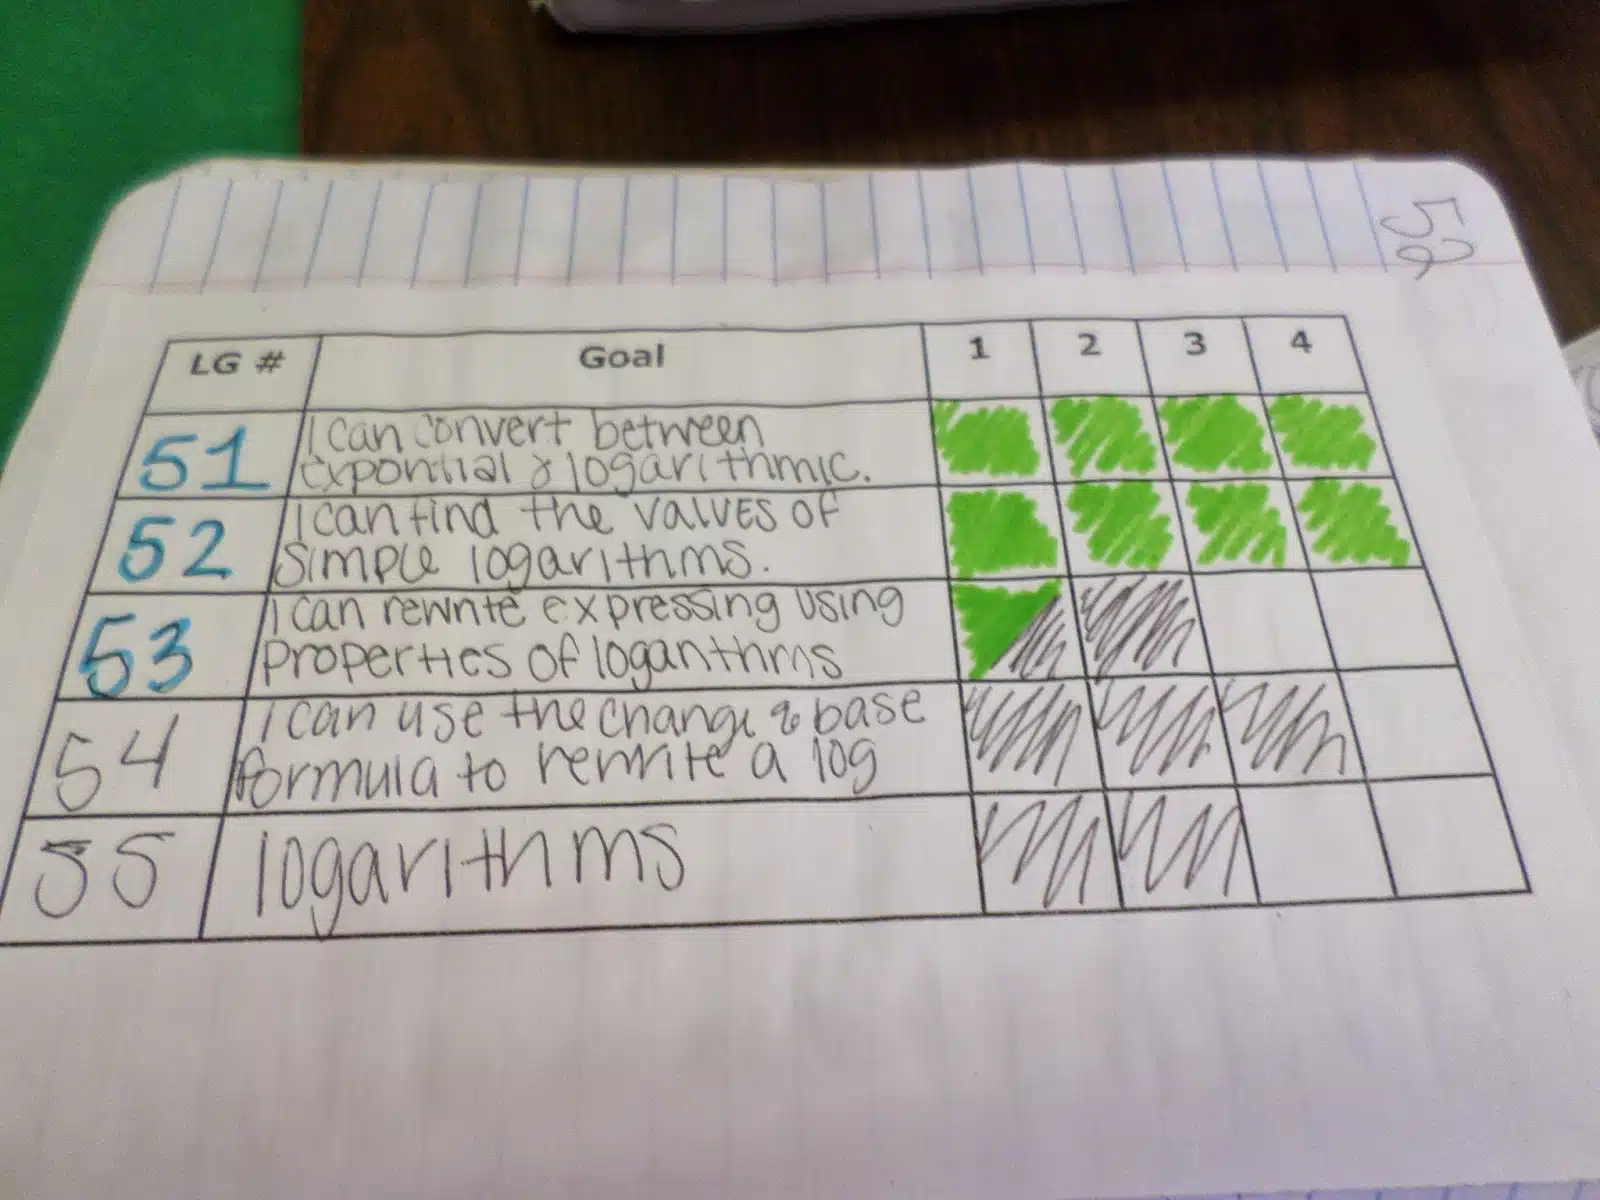 52
LG # Goal 1 2 3 4
51 I can convert between
expontial & logarithmic.
52 I can find the values of
simple logarithms.
53 I can rewrite expressing using
properties of logarithms
54 I can use the change & base
formula to rewrite a log
55 logarithms